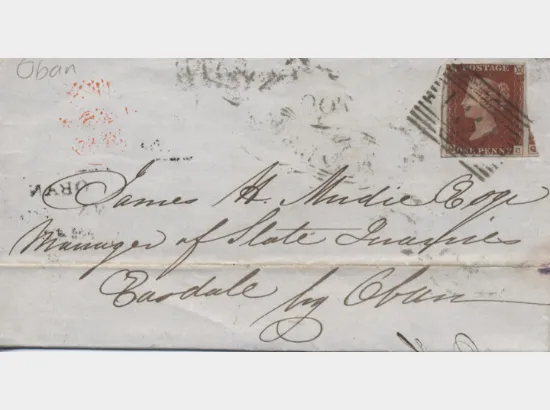 Oban
POSTAGE
ONE PENNY
OBAN
James H. Mudie Esqr
Manager of Slate Quarries
Easdale by Oban